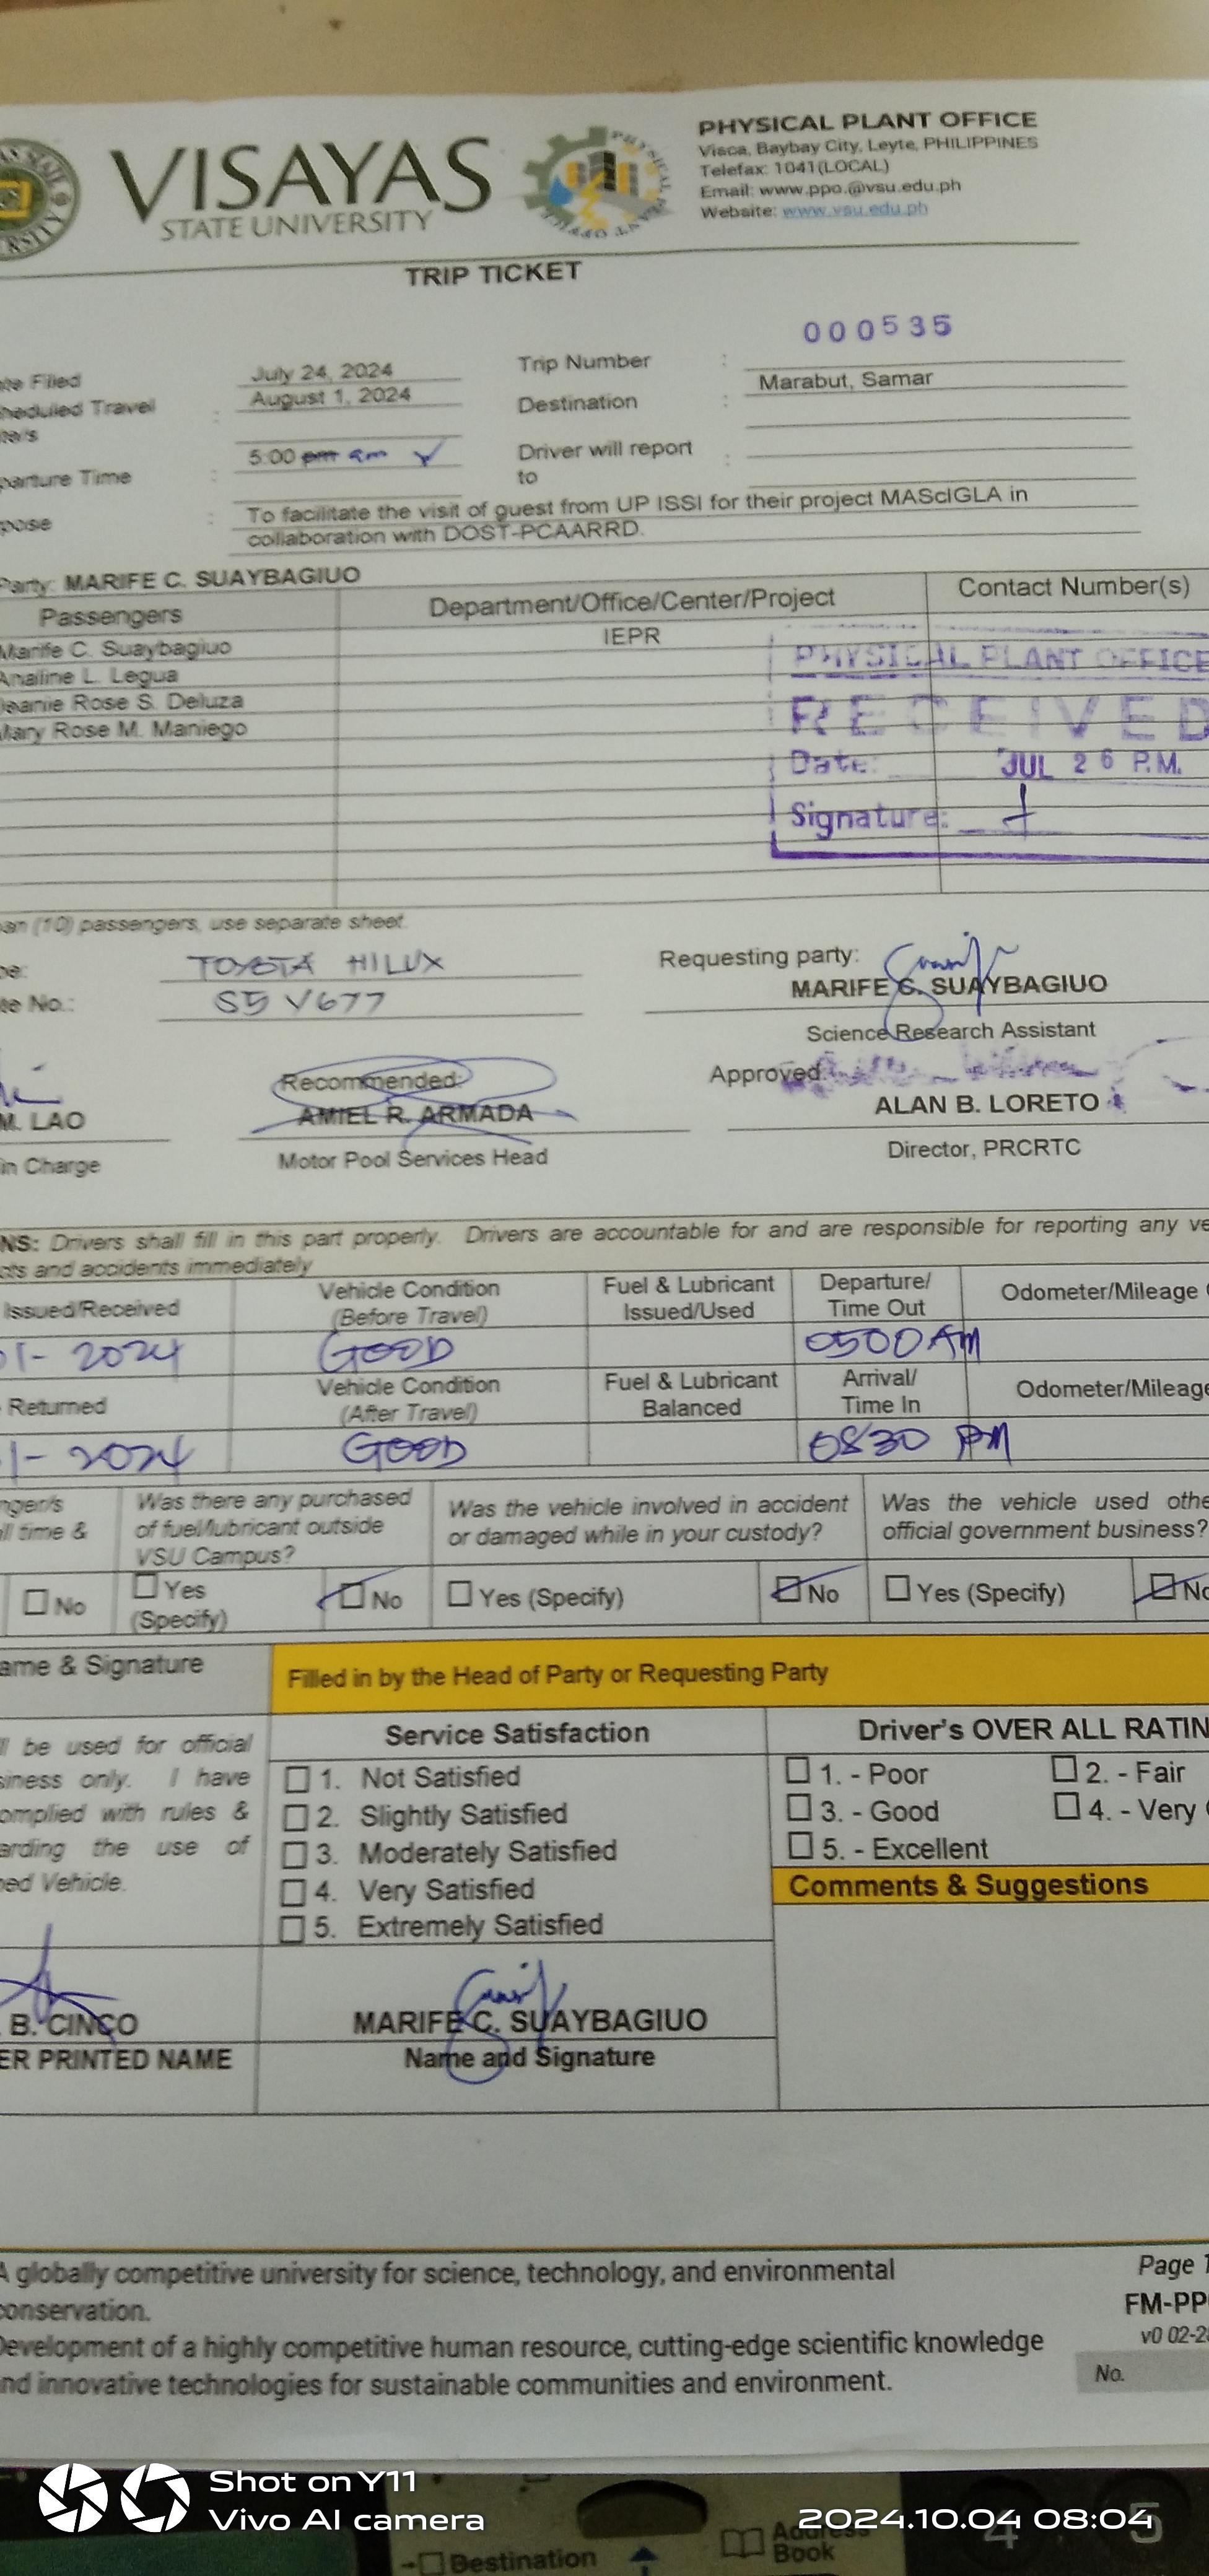 VISAYAS
STATE UNIVERSITY
PHYSICAL PLANT OFFICE
Visca, Baybay City, Leyte, PHILIPPINES
Telefax: 1041(LOCAL)
Email: www.ppo.@vsu.edu.ph
Website: www.vsu.edu.ph
TRIP TICKET
000535
te Filed July 24, 2024 Trip Number :
heduled Travel : August 1, 2024 Destination : Marabut, Samar
te/s
parture Time : 5:00 pm am Driver will report to :
pose : To facilitate the visit of guest from UP ISSI for their project MAScIGLA in
collaboration with DOST-PCAARRD.
Party: MARIFE C. SUAYBAGIUO
Passengers Department/Office/Center/Project Contact Number(s)
Marife C. Suaybagiuo IEPR
Analine L. Legua
Jeanie Rose S. Deluza
Mary Rose M. Maniego
PHYSICAL PLANT OFFICE
RECEIVED
Date: JUL 26 P.M.
Signature:
an (10) passengers, use separate sheet.
pe: TOYOTA HILUX
te No.: S5 V677
Requesting party:
MARIFE C. SUAYBAGIUO
Science Research Assistant
M. LAO
in Charge
Recommended:
AMIEL R. ARMADA
Motor Pool Services Head
Approved:
ALAN B. LORETO
Director, PRCRTC
NS: Drivers shall fill in this part properly. Drivers are accountable for and are responsible for reporting any ve
cts and accidents immediately
Issued/Received Vehicle Condition (Before Travel) Fuel & Lubricant Issued/Used Departure/ Time Out Odometer/Mileage
01- 2024 GOOD 0500 AM
Returned Vehicle Condition (After Travel) Fuel & Lubricant Balanced Arrival/ Time In Odometer/Mileage
1- 2024 GOOD 0830 PM
nger/s
ll time &
Was there any purchased of fuel/lubricant outside VSU Campus?
Was the vehicle involved in accident or damaged while in your custody?
Was the vehicle used othe
official government business?
No Yes (Specify) No Yes (Specify) No Yes (Specify) No
ame & Signature
Filled in by the Head of Party or Requesting Party
ll be used for official
siness only. I have
omplied with rules &
arding the use of
ned Vehicle.
Service Satisfaction
1. Not Satisfied
2. Slightly Satisfied
3. Moderately Satisfied
4. Very Satisfied
5. Extremely Satisfied
Driver's OVER ALL RATIN
1. - Poor 2. - Fair
3. - Good 4. - Very
5. - Excellent
Comments & Suggestions
B. CINCO
ER PRINTED NAME
MARIFE C. SUAYBAGIUO
Name and Signature
A globally competitive university for science, technology, and environmental
conservation.
Development of a highly competitive human resource, cutting-edge scientific knowledge
nd innovative technologies for sustainable communities and environment.
Page 1
FM-PP
v0 02-2
No.
Shot on Y11
Vivo AI camera
2024.10.04 08:04
Destination
Address
Book
4
5